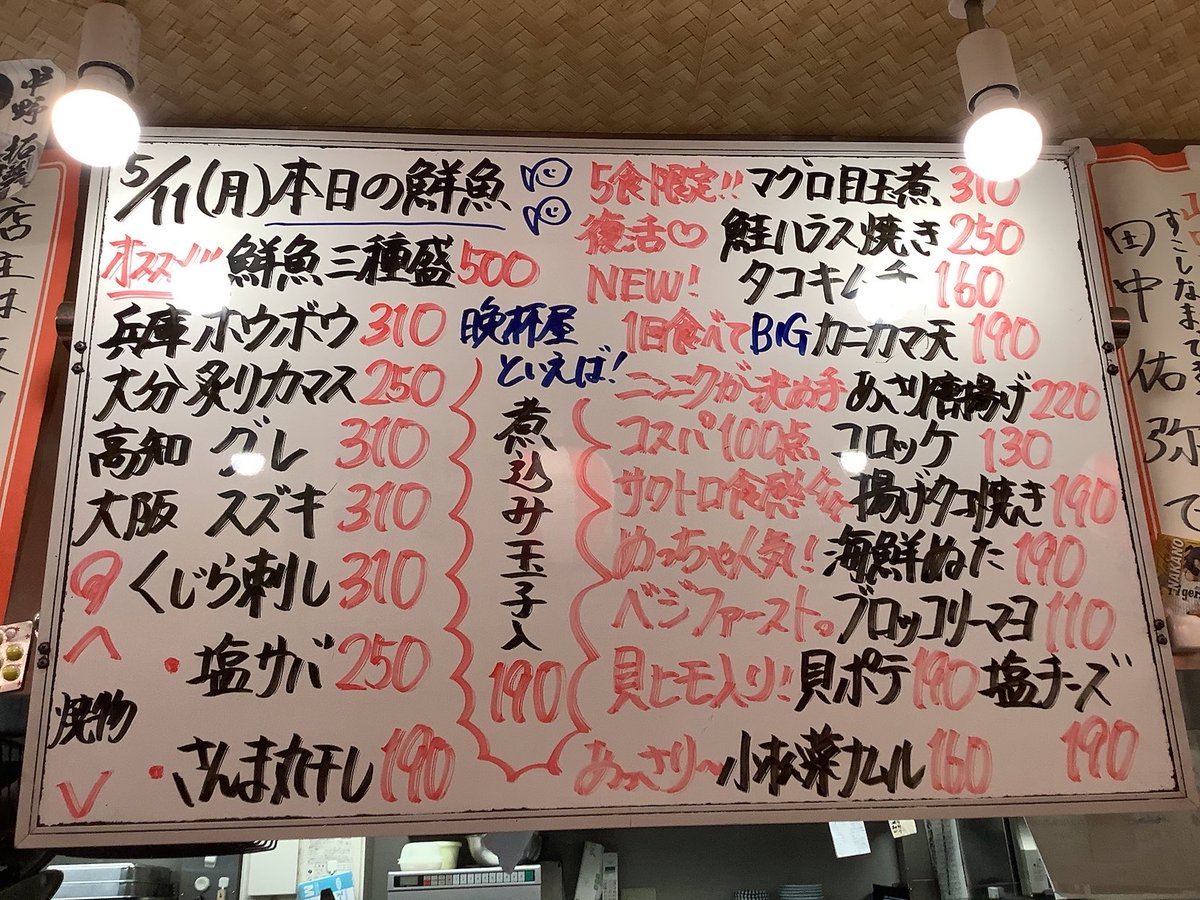 5/11(月)本日の鮮魚
オススメ!! 鮮魚三種盛 500
兵庫 ホウボウ 310
大分 炙りカマス 250
高知 グレ 310
大阪 スズキ 310
くじら刺し 310
<焼物>
・塩サバ 250
・さんま丸干し 190
晩杯屋
といえば!
煮込み玉子入
190
5食限定!! マグロ目玉煮 310
復活♡ 鮭ハラス焼き 250
NEW! タコキムチ 160
1日食べて BIGカニカマ天 190
ニンニクが決め手 あさり唐揚げ 220
コスパ100点 コロッケ 130
サクトロ食感 揚げタコ焼き 190
めっちゃ人気! 海鮮ぬた 190
ベジファースト。 ブロッコリーマヨ 110
貝ヒモ入り! 貝ポテ 190 塩チーズ 190
あっさり~ 小松菜ナムル 160
中野
店
すこしなまで
田中佑弥で
NAKANO